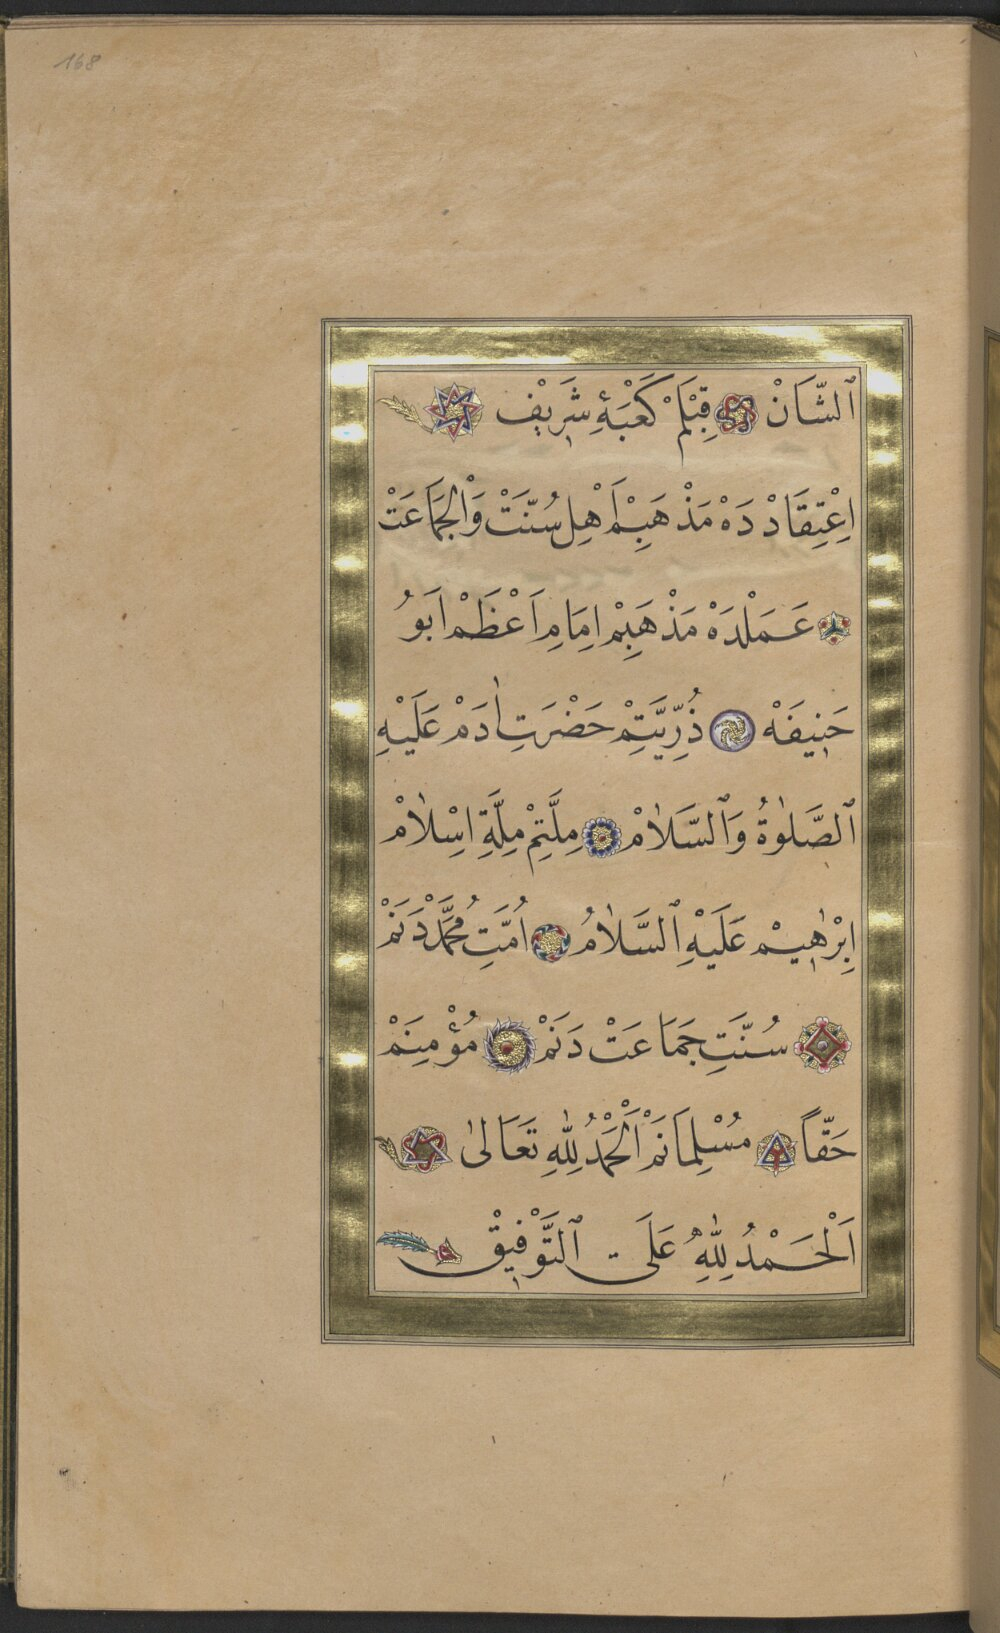 168
ٱلشَّانْ قِبْلَمْ كَعْبَۀِ شَرِيفْ
اِعْتِقَادْ دَهْ مَذْهَبِمْ اَهْلِ سُنَّتْ وَالْجَمَاعَتْ
عَمَلْدَهْ مَذْهَبِمْ اِمَامِ اَعْظَمْ اَبُو
حَنِيفَهْ ذُرِّيَّتِمْ حَضْرَتِ اٰدَمْ عَلَيْهِ
ٱلصَّلٰوةُ وَٱلسَّلَامْ مِلَّتِمْ مِلَّةِ اِسْلَامْ
اِبْرٰهِيمْ عَلَيْهِ ٱلسَّلَامُ اُمَّتِ مُحَمَّدْدَنَمْ
سُنَّتِ جَمَاعَتْ دَنَمْ مُؤْمِنَمْ
حَقّاً مُسْلِمَانَمْ اَلْحَمْدُ لِلّٰهِ تَعَالٰى
اَلْحَمْدُ لِلّٰهِ عَلَى ٱلتَّوْفِيقْ